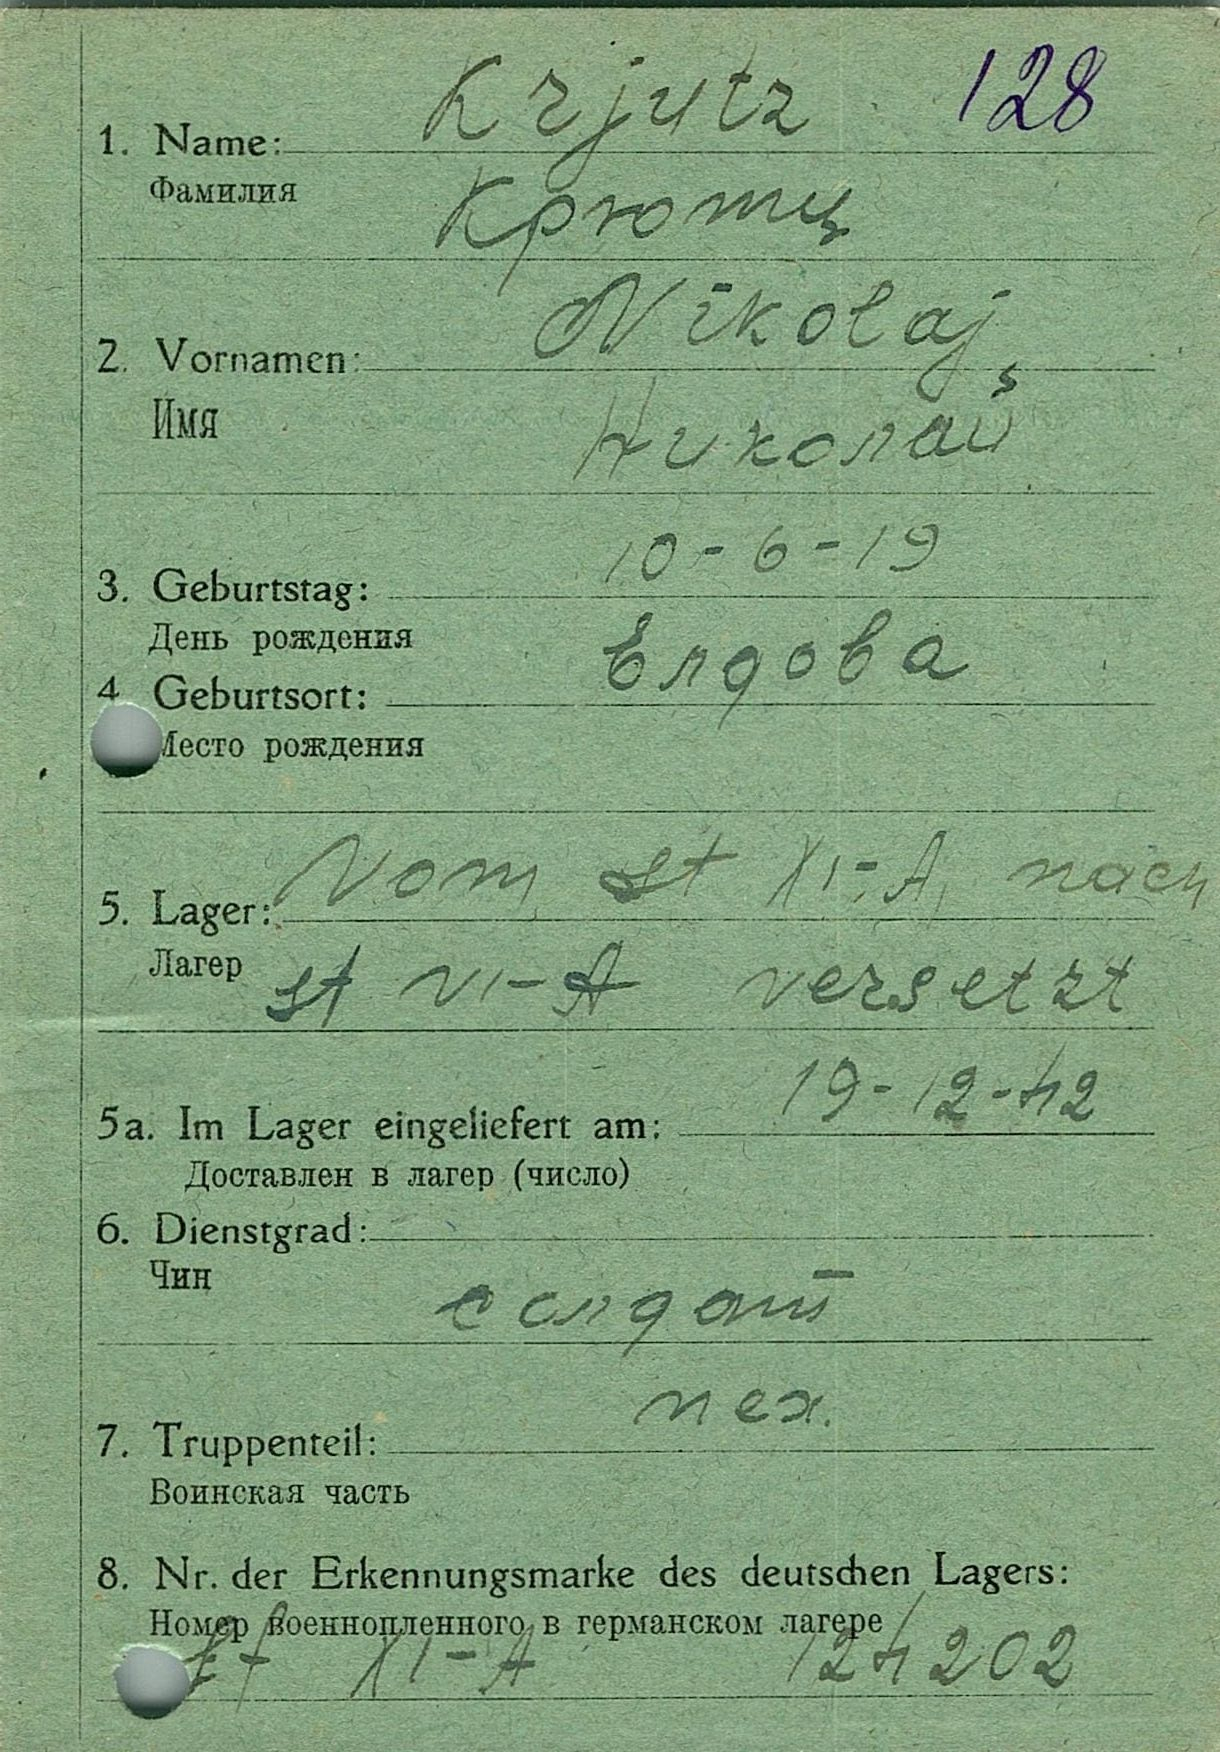 Krjutz 128
1. Name:
Фамилия
Крютц
Nikolaj
2. Vornamen:
Имя
Николай
10-6-19
3. Geburtstag:
День рождения
Елдова
4 Geburtsort:
Место рождения
Vom St XI-A, nach
5. Lager:
Лагер
St VI-A versetzt
19-12-42
5a. Im Lager eingeliefert am:
Доставлен в лагер (число)
6. Dienstgrad:
Чин
солдат
пех.
7. Truppenteil:
Воинская часть
8. Nr. der Erkennungsmarke des deutschen Lagers:
Номер военнопленного в германском лагере
XI-A 124202